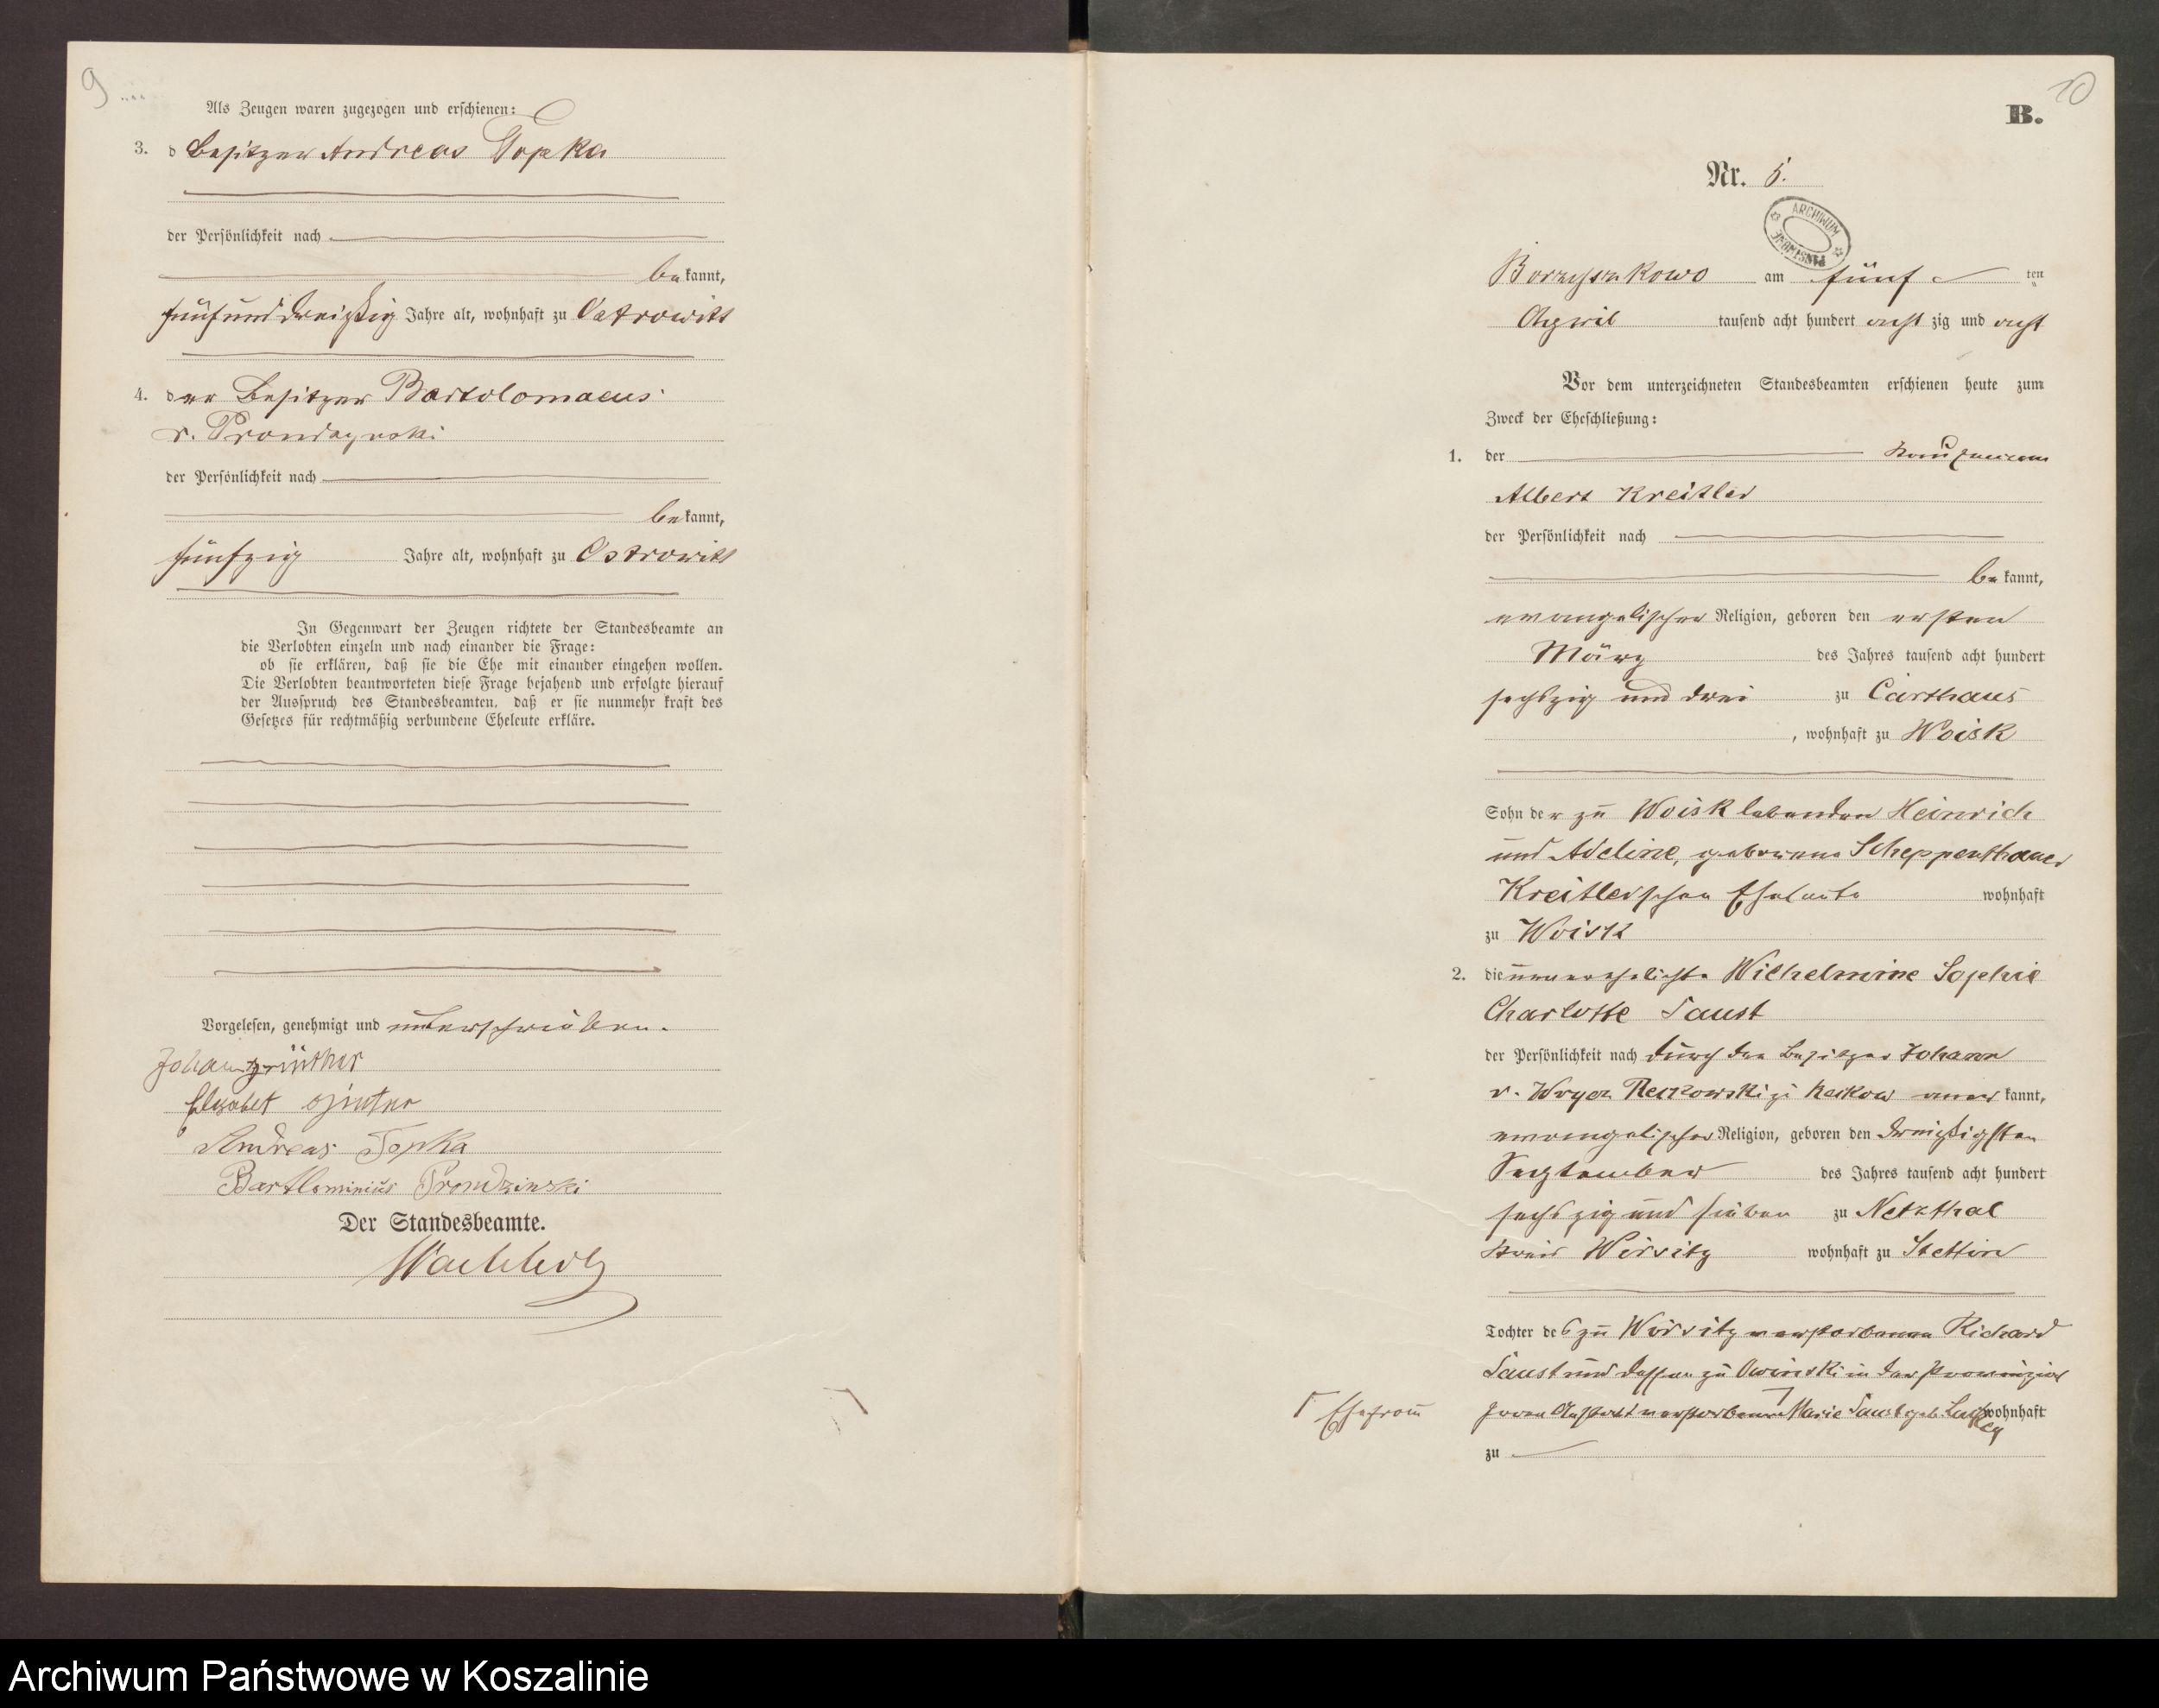 9
Als Zeugen waren zugezogen und erschienen:
3. d Besitzer Andreas Topka
der Persönlichkeit nach
bekannt,
fünfunddreißig Jahre alt, wohnhaft zu Ostrowitt
4. der Besitzer Bartolomaeus
v. Prondzynski
der Persönlichkeit nach
bekannt,
fünfzig Jahre alt, wohnhaft zu Ostrowitt
In Gegenwart der Zeugen richtete der Standesbeamte an
die Verlobten einzeln und nach einander die Frage:
ob sie erklären, daß sie die Ehe mit einander eingehen wollen.
Die Verlobten beantworteten diese Frage bejahend und erfolgte hierauf
der Ausspruch des Standesbeamten, daß er sie nunmehr kraft des
Gesetzes für rechtmäßig verbundene Eheleute erkläre.
Vorgelesen, genehmigt und unterschrieben.
Johann
Elisabet
Andreas Topka
Prondzinski
Der Standesbeamte.
Wachholz
10
B.
Nr. 5.
ARCHIWUM PAŃSTWOWE
Borzyszkowo am fünf ten
April tausend acht hundert acht zig und acht
Vor dem unterzeichneten Standesbeamten erschienen heute zum
Zweck der Eheschließung:
1. der Kaufmann
Albert Kreitler
der Persönlichkeit nach
bekannt,
evangelischer Religion, geboren den ersten
März des Jahres tausend acht hundert
sechszig und drei zu Carthaus
, wohnhaft zu Woisk
Sohn der zu Woisk lebenden Heinrich
und Adeline, geborene
Kreitlerschen Eheleute wohnhaft
zu Woisk
2. die unverehelichte Wilhelmine Sophie
Charlotte Saust
der Persönlichkeit nach durch den Besitzer Johann
v. Reckowski zu aner kannt,
evangelischer Religion, geboren den dreißigsten
September des Jahres tausend acht hundert
sechszig und sieben zu Netzthal
Kreis Wirsitz wohnhaft zu Stettin
Tochter des zu Wirsitz verstorbenen Richard
Saust und dessen zu Owinski in der Provinzial
Irren Anstalt verstorbenen ⌉ Marie Saust geb. wohnhaft
⌈ Ehefrau
zu
Archiwum Państwowe w Koszalinie